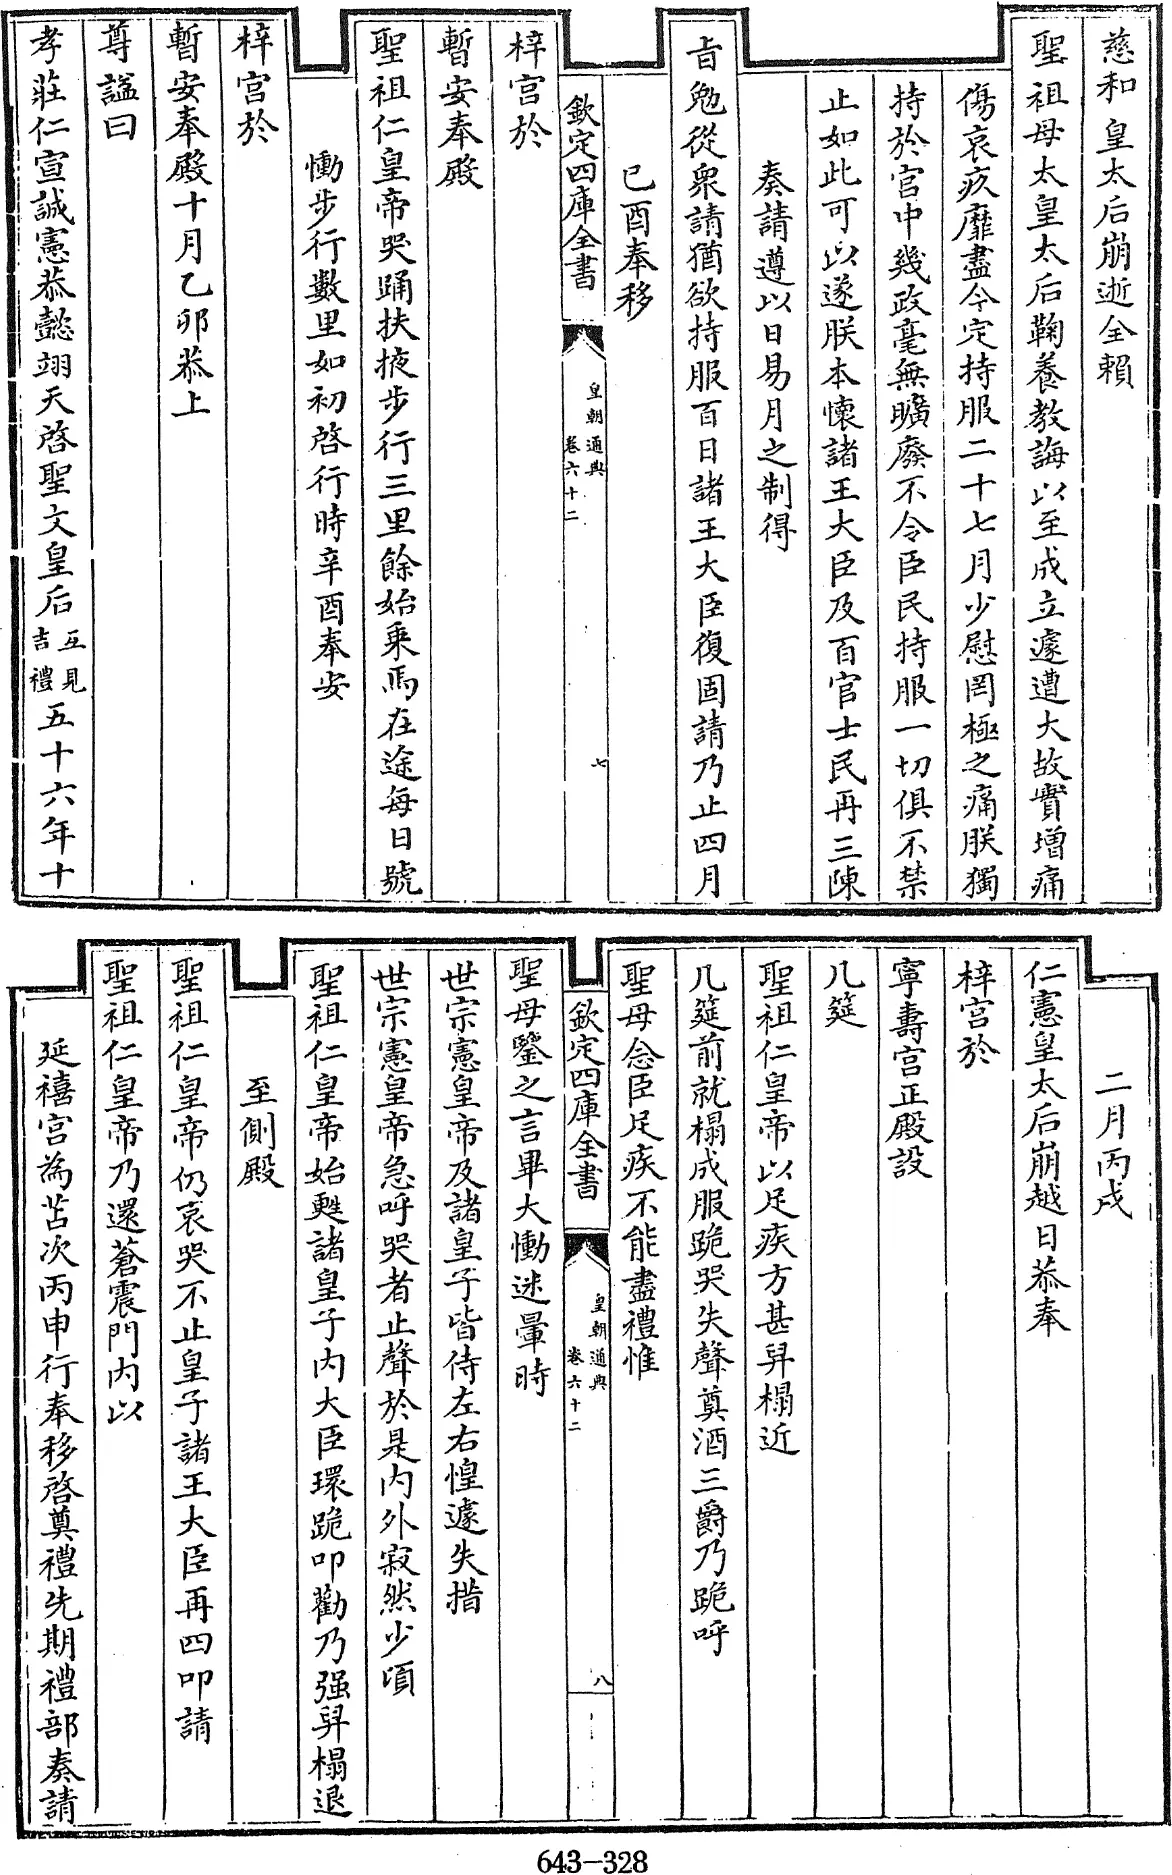 慈和皇太后崩逝全賴
聖祖母太皇太后鞠養教誨以至成立遽遭大故實增痛
傷哀疚靡盡今定持服二十七月少慰罔極之痛朕獨
持於宮中幾政毫無曠廢不令臣民持服一切俱不禁
止如此可以遂朕本懷諸王大臣及百官士民再三陳
奏請遵以日易月之制得
旨勉從衆請猶欲持服百日諸王大臣復固請乃止四月
己酉奉移
欽定四庫全書 皇朝通典 卷六十二 七
梓宮於
暫安奉殿
聖祖仁皇帝哭踊扶掖步行三里餘始乘馬在途每日號
慟步行數里如初啓行時辛酉奉安
梓宮於
暫安奉殿十月乙卯恭上
尊諡曰
孝莊仁宣誠憲恭懿翊天啓聖文皇后互見吉禮五十六年十
二月丙戌
仁憲皇太后崩越日恭奉
梓宮於
寧壽宮正殿設
几筵
聖祖仁皇帝以足疾方甚舁榻近
几筵前就榻成服跪哭失聲奠酒三爵乃跪呼
聖母念臣足疾不能盡禮惟
欽定四庫全書 皇朝通典 卷六十二 八
聖母鑒之言畢大慟迷暈時
世宗憲皇帝及諸皇子皆侍左右惶遽失措
世宗憲皇帝急呼哭者止聲於是内外寂然少頃
聖祖仁皇帝始甦諸皇子内大臣環跪叩勸乃强舁榻退
至側殿
聖祖仁皇帝仍哀哭不止皇子諸王大臣再四叩請
聖祖仁皇帝乃還蒼震門内以
延禧宮為苫次丙申行奉移啓奠禮先期禮部奏請
643-328